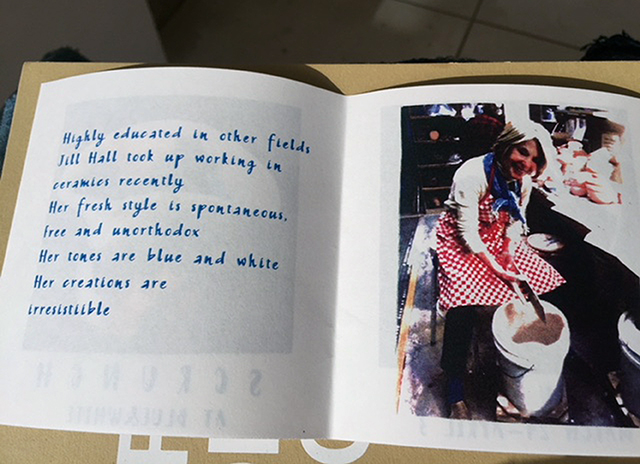 Highly educated in other fields
Jill Hall took up working in
ceramics recently
Her fresh style is spontaneous,
free and unorthodox
Her tones are blue and white
Her creations are
irresistiible
SCRUNCH
AT BLUE&WHITE